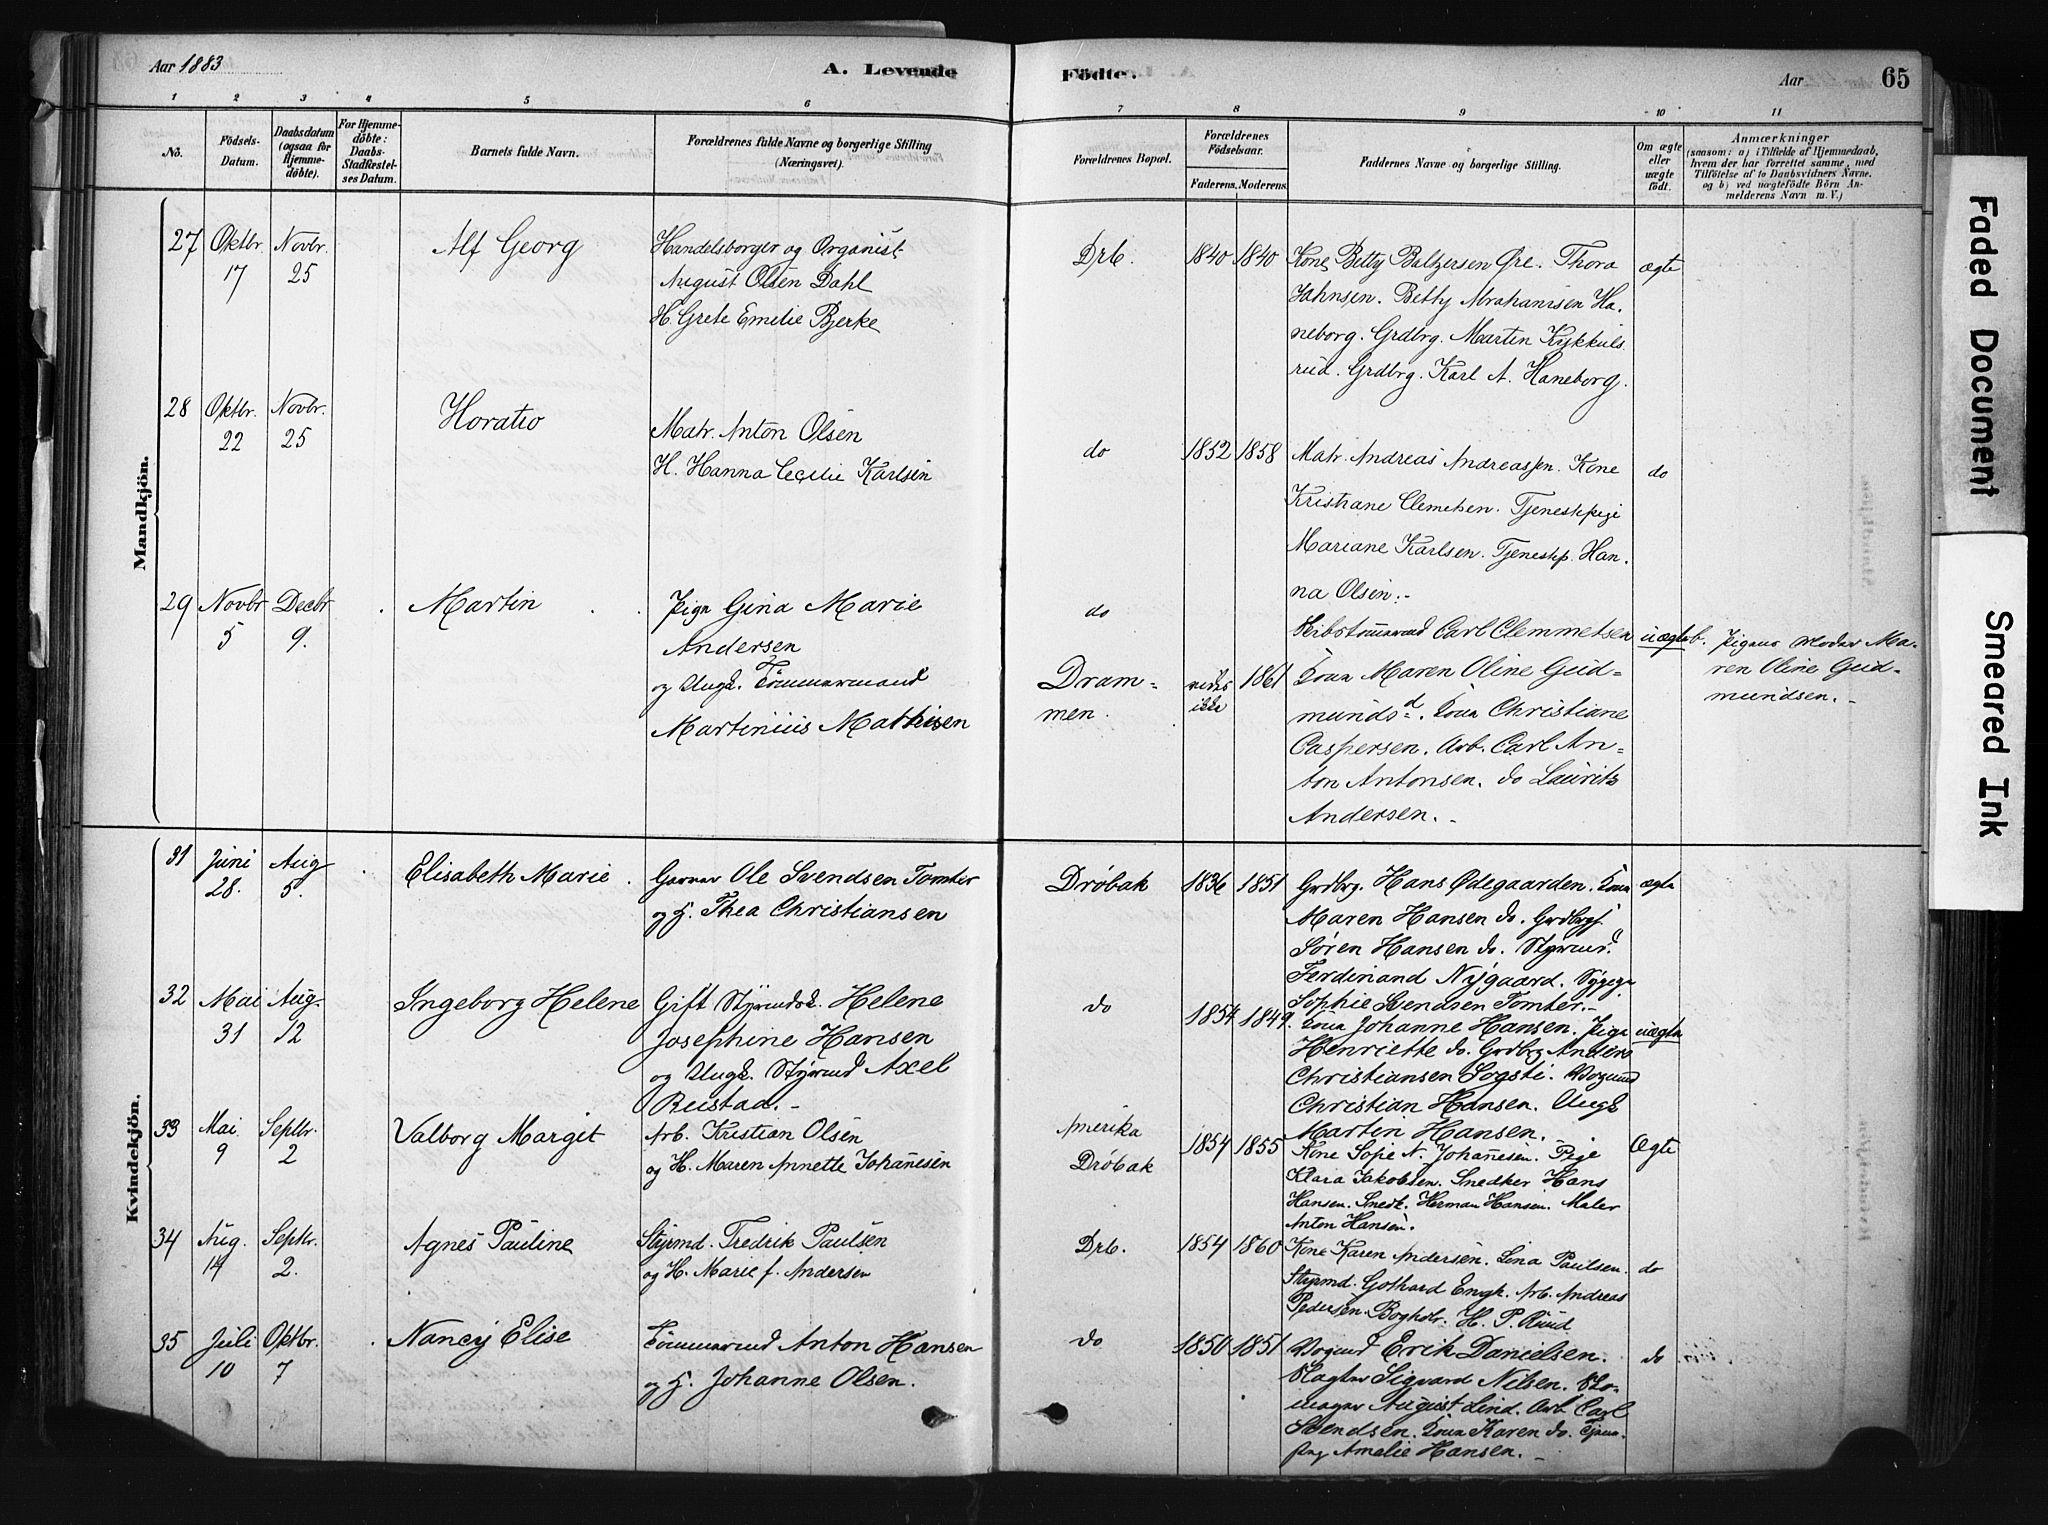 Aar 1883
A. Levende
Födte.
Aar
65
1 2 3 4 5 6 7 8 9 10 11
No.
Födsels-
Datum.
Daabsdatum
(ogsaa for
Hjemme-
döbte).
For Hjemme-
döbte:
Daabs-
Stadfæstel-
ses Datum.
Barnets fulde Navn.
Forældrenes fulde Navne og borgerlige Stilling
(Næringsvei).
Forældrenes Bopæl.
Forældrenes
Födselsaar.
Faderens. Moderens.
Faddernes Navne og borgerlige Stilling.
Om ægte
eller
uægte
födt.
Anmærkninger
(saasom: a) i Tilfælde af Hjemmedaab,
hvem der har forrettet samme, med
Tilföielse af to Daabsvidners Navne.
og b) ved uægtefödte Börn An-
melderens Navn m. V.)
Mandkjön.
27 Oktbr. 17
Novbr. 25
Alf Georg
Handelsborger og Organist
August Olsen Dahl
H. Grete Emilie Bjerke
Drb.
1840 1840
Kone Betty Baltzersen Øre. Thora
Jahnsen. Betty Abrahamsen Ha-
neborg. Grdbrg. Martin Kykkels
rud. Grdbrg. Karl A. Haneborg.
ægte
28 Oktbr. 22
Novbr. 25
Horatio
Matr. Anton Olsen
H. Hanna Cecilie Karlsen
do
1852 1858
Matr. Andreas Andreassen. Kone
Kristiane Clemetsen. Tjenestpige
Mariane Karlsen. Tjenestp. Han-
na Olsen.-
do
29 Novbr 5
Decbr 9.
Martin
Pige Gina Marie
Andersen
og Ungk. Tømmermand
Martinius Mathisen
do
Dram-
men.
vides
ikke
1861
Skibstømmermd Carl Clemmetsen
Kone Maren Oline Gud-
mundsd. Kone Christiane
Caspersen. Arb. Carl An-
ton Antonsen. do Lauritz
Andersen. -
uægte
b. Pigens Moder Ma-
ren Oline Gud-
mundsen. -
Kvindekjön.
31 Juni 28.
Aug 5.
Elisabeth Marie.
Garver Ole Svendsen Tomter
og H. Thea Christiansen
Drøbak
1836 1851
Grdbrg. Hans Ødegaarden. Kone
Maren Hansen do. Grdbrgs.
Søren Hansen do. Styrmd.
Ferdinand Nygaard. Sypige
Sophie Svendsen Tomter.-
ægte
32 Mai 31
Aug. 12
Ingeborg Helene
Gift Styrmdsk. Helene
Josephine Hansen
og Ungk. Styrmd Axel
Reistad. -
do
1854 1849.
Kone Johanne Hansen. Pige
Henriette do. Grdbrg Anders
Christiansen Sogsti. Bogmd
Christian Hansen. Ungk
Martin Hansen.
uægte
33 Mai 9
Septbr. 2
Valborg Margit
Arb. Kristian Olsen
og H. Maren Annette Johannesen
Amerika
Drøbak
1854 1855
Kone Sofie N. Johannesen. Pige
Klara Jakobsen. Snedker Hans
Hansen. Snedk. Herman Hansen. Maler
Anton Hansen.
Ægte
34 Aug. 14
Septbr. 2.
Agnes Pauline
Styrmd. Fredrik Paulsen
og H. Marie f. Andersen
Drb.
1854 1860
Kone Karen Andersen. Lina Paulsen.
Styrmd. Gothard Engh. Arb. Andreas
Pedersen. Bogholr. H. P. Ruud
do
35 Juli 10
Oktbr. 7
Nancy Elise
Tømmermd Anton Hansen
og H. Johanne Olsen.
do
1850 1851
Bogmd Erik Danielsen.
Slagter Sigvard Nilsen. Sko-
mager August Lind. Arb. Carl
Svendsen. Kone Karen do. Tjene-
pig Amalie Hansen. -
do
Faded Document
Smeared Ink